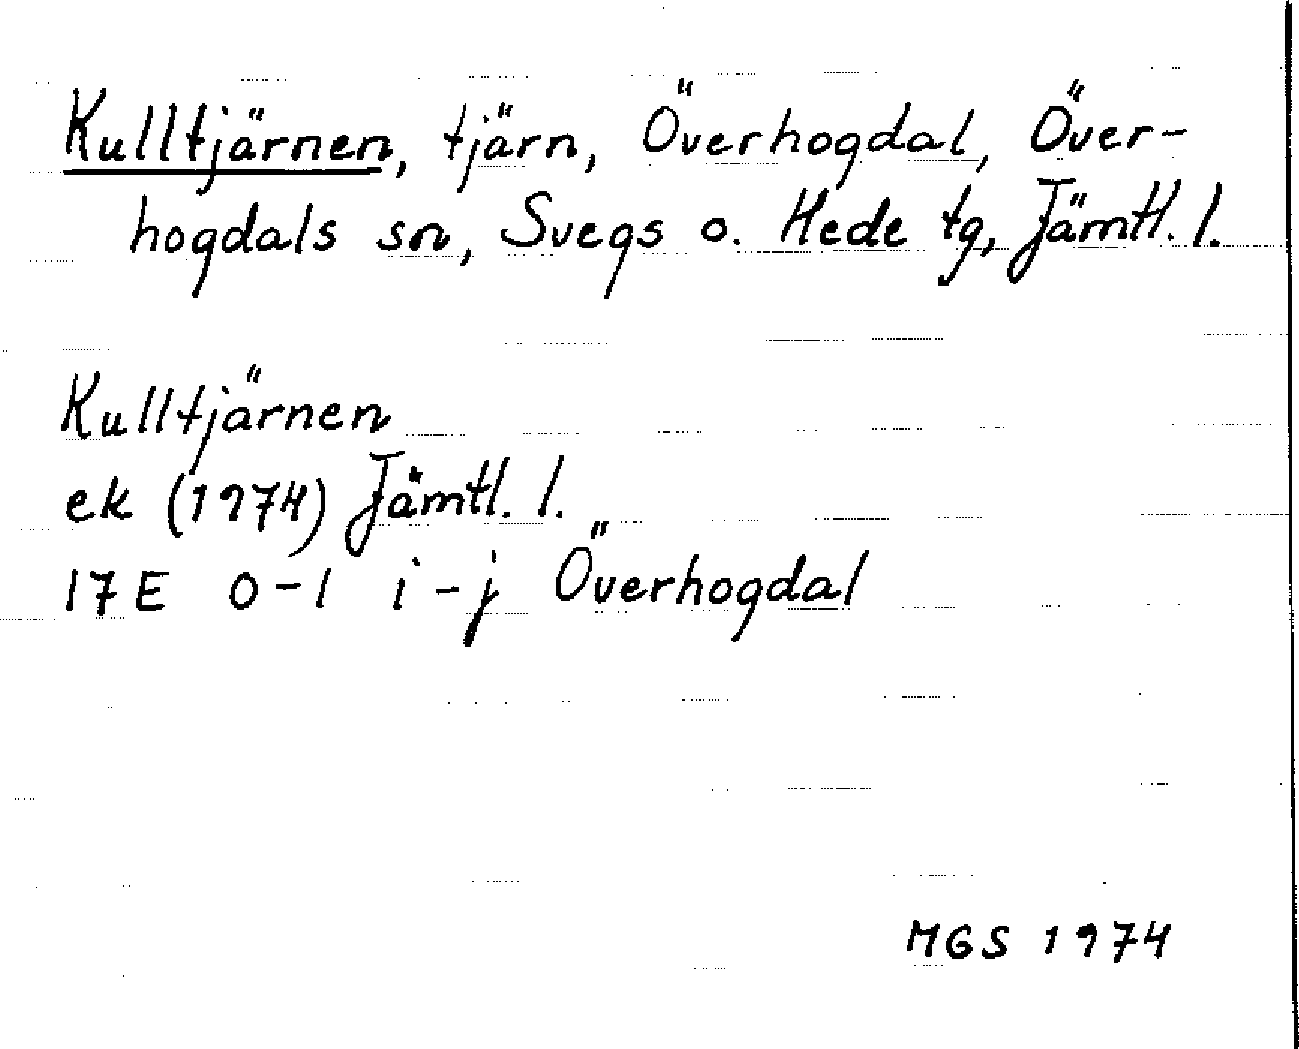 Kulltjärnen, tjärn, Överhogdal, Över-
hogdals sn, Svegs o. Hede tg, Jämtl. l.
Kulltjärnen
ek (1974) Jämtl. l.
17E 0-1 i-j Överhogdal
MGS 1974